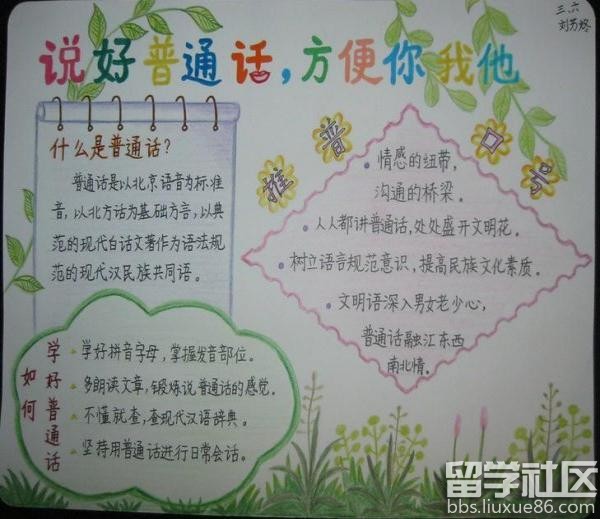 三.六
说好普通话,方便你我他
什么是普通话?
普通话是以北京语音为标准
音,以北方话为基础方言,以典
范的现代白话文著作为语法规
范的现代汉民族共同语。
推普口号
情感的纽带,
沟通的桥梁。
人人都讲普通话,处处盛开文明花。
树立语言规范意识,提高民族文化素质。
文明语深入男女老少心,
普通话融汇东西
南北情。
如何
学好普通话
学好拼音字母,掌握发音部位。
多朗读文章,锻炼说普通话的感觉。
不懂就查,查现代汉语辞典。
坚持用普通话进行日常会话。
留学社区
bbs.liuxue86.com